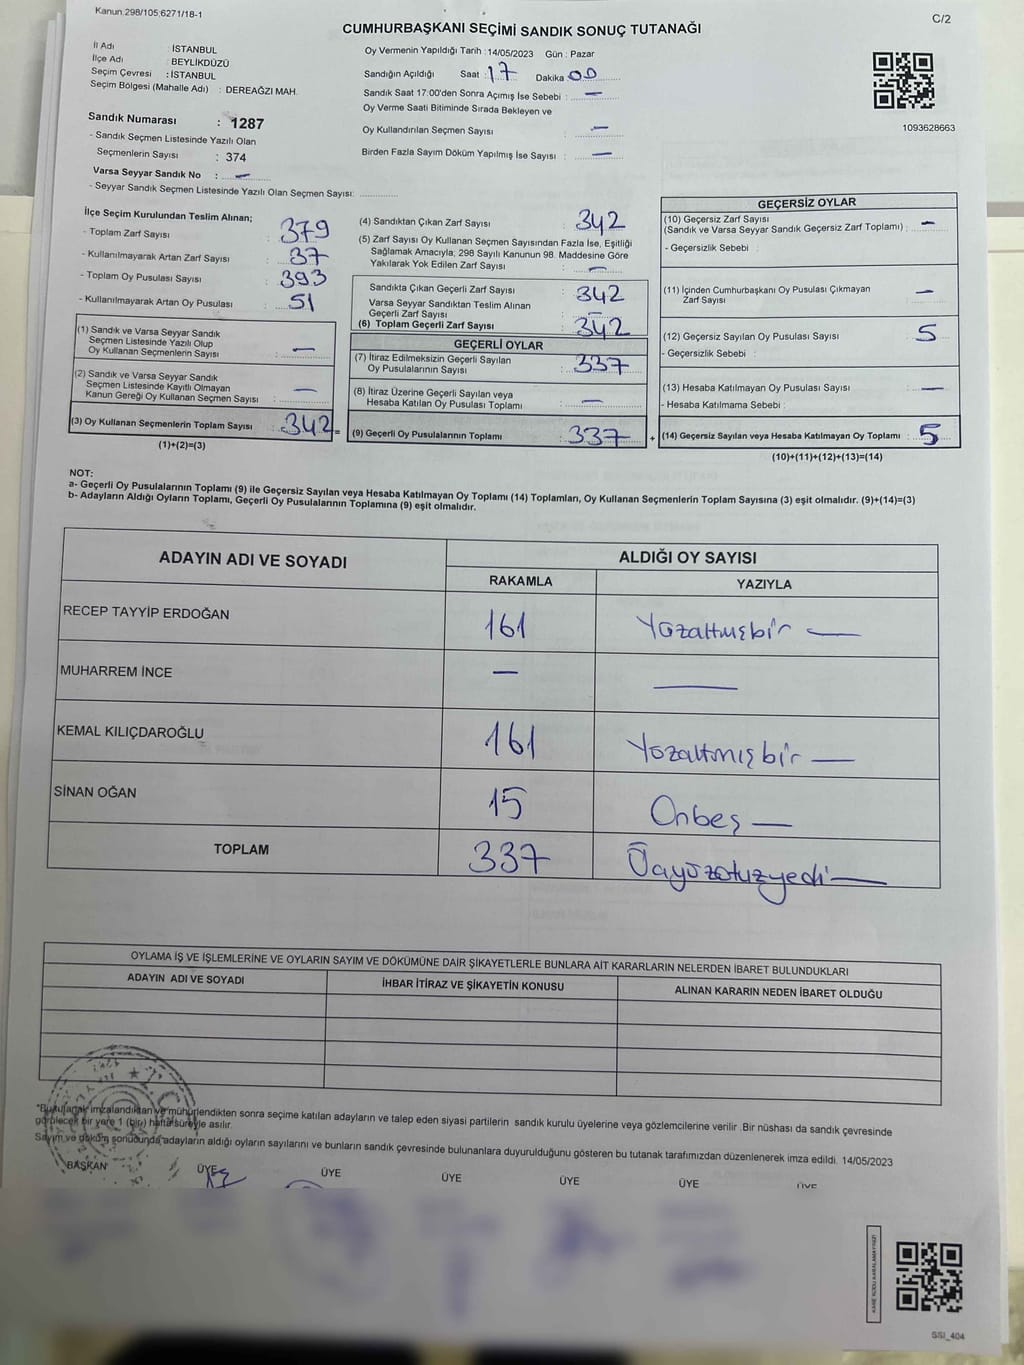 Kanun:298/105;6271/18-1
C/2
CUMHURBAŞKANI SEÇİMİ SANDIK SONUÇ TUTANAĞI
İl Adı : İSTANBUL
İlçe Adı : BEYLİKDÜZÜ
Seçim Çevresi : İSTANBUL
Seçim Bölgesi (Mahalle Adı) : DEREAĞZI MAH.
Oy Vermenin Yapıldığı Tarih :14/05/2023 Gün : Pazar
Sandığın Açıldığı Saat : 17 Dakika 00
Sandık Saat 17:00'den Sonra Açımış İse Sebebi : —
Oy Verme Saati Bitiminde Sırada Bekleyen ve
Oy Kullandırılan Seçmen Sayısı : —
Birden Fazla Sayım Döküm Yapılmış İse Sayısı : —
1093628663
Sandık Numarası : 1287
- Sandık Seçmen Listesinde Yazılı Olan
Seçmenlerin Sayısı : 374
Varsa Seyyar Sandık No : —
- Seyyar Sandık Seçmen Listesinde Yazılı Olan Seçmen Sayısı: ..............
İlçe Seçim Kurulundan Teslim Alınan;
- Toplam Zarf Sayısı : 379
- Kullanılmayarak Artan Zarf Sayısı : 37
- Toplam Oy Pusulası Sayısı : 393
- Kullanılmayarak Artan Oy Pusulası : 51
(1) Sandık ve Varsa Seyyar Sandık
Seçmen Listesinde Yazılı Olup
Oy Kullanan Seçmenlerin Sayısı : —
(2) Sandık ve Varsa Seyyar Sandık
Seçmen Listesinde Kayıtlı Olmayan
Kanun Gereği Oy Kullanan Seçmen Sayısı : —
(3) Oy Kullanan Seçmenlerin Toplam Sayısı : 342
(1)+(2)=(3)
(4) Sandıktan Çıkan Zarf Sayısı : 342
(5) Zarf Sayısı Oy Kullanan Seçmen Sayısından Fazla İse, Eşitliği
Sağlamak Amacıyla; 298 Sayılı Kanunun 98. Maddesine Göre
Yakılarak Yok Edilen Zarf Sayısı : —
Sandıkta Çıkan Geçerli Zarf Sayısı : 342
Varsa Seyyar Sandıktan Teslim Alınan
Geçerli Zarf Sayısı : —
(6) Toplam Geçerli Zarf Sayısı : 342
GEÇERLİ OYLAR
(7) İtiraz Edilmeksizin Geçerli Sayılan
Oy Pusulalarının Sayısı : 337
(8) İtiraz Üzerine Geçerli Sayılan veya
Hesaba Katılan Oy Pusulası Toplamı : —
= (9) Geçerli Oy Pusulalarının Toplamı : 337 +
GEÇERSİZ OYLAR
(10) Geçersiz Zarf Sayısı
(Sandık ve Varsa Seyyar Sandık Geçersiz Zarf Toplamı) : —
- Geçersizlik Sebebi :
(11) İçinden Cumhurbaşkanı Oy Pusulası Çıkmayan
Zarf Sayısı : —
(12) Geçersiz Sayılan Oy Pusulası Sayısı : 5
- Geçersizlik Sebebi :
(13) Hesaba Katılmayan Oy Pusulası Sayısı : —
- Hesaba Katılmama Sebebi :
(14) Geçersiz Sayılan veya Hesaba Katılmayan Oy Toplamı : 5
(10)+(11)+(12)+(13)=(14)
NOT:
a- Geçerli Oy Pusulalarının Toplamı (9) ile Geçersiz Sayılan veya Hesaba Katılmayan Oy Toplamı (14) Toplamları, Oy Kullanan Seçmenlerin Toplam Sayısına (3) eşit olmalıdır. (9)+(14)=(3)
b- Adayların Aldığı Oyların Toplamı, Geçerli Oy Pusulalarının Toplamına (9) eşit olmalıdır.
ADAYIN ADI VE SOYADI ALDIĞI OY SAYISI
RAKAMLA YAZIYLA
RECEP TAYYİP ERDOĞAN 161 Yüzaltmışbir —
MUHARREM İNCE — —
KEMAL KILIÇDAROĞLU 161 Yüzaltmışbir —
SİNAN OĞAN 15 Onbeş —
TOPLAM 337 Üçyüzotuzyedi —
OYLAMA İŞ VE İŞLEMLERİNE VE OYLARIN SAYIM VE DÖKÜMÜNE DAİR ŞİKAYETLERLE BUNLARA AİT KARARLARIN NELERDEN İBARET BULUNDUKLARI
ADAYIN ADI VE SOYADI İHBAR İTİRAZ VE ŞİKAYETİN KONUSU ALINAN KARARIN NEDEN İBARET OLDUĞU
*Bu tutanak imzalandıktan ve mühürlendikten sonra seçime katılan adayların ve talep eden siyasi partilerin sandık kurulu üyelerine veya gözlemcilerine verilir. Bir nüshası da sandık çevresinde
görülecek bir yere 1 (bir) hafta süreyle asılır.
Sayım ve döküm sonucunda adayların aldığı oyların sayılarını ve bunların sandık çevresinde bulunanlara duyurulduğunu gösteren bu tutanak tarafımızdan düzenlenerek imza edildi. 14/05/2023
BAŞKAN ÜYE ÜYE ÜYE ÜYE ÜYE ÜYE
KARE KODU KARALAMAYINIZ!
SSI_404